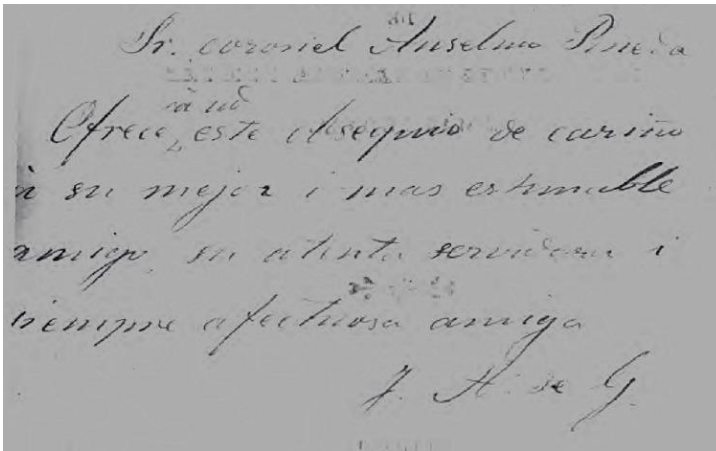 Sr. coronel Anselmo Pineda
à ud
Ofrece, este obsequio de cariño
à su mejor i mas estimable
amigo, su atenta servidora i
siempre afectuosa amiga
J. A. de G.